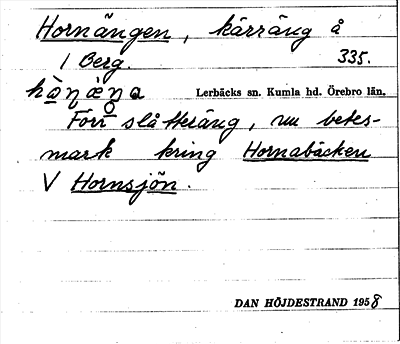 Hornängen, kärräng å
1 Berg. 335.
Lerbäcks sn. Kumla hd. Örebro län.
Förr slåtteräng, nu betes-
mark kring Hornabäcken
V Hornsjön.
DAN HÖJDESTRAND 1958